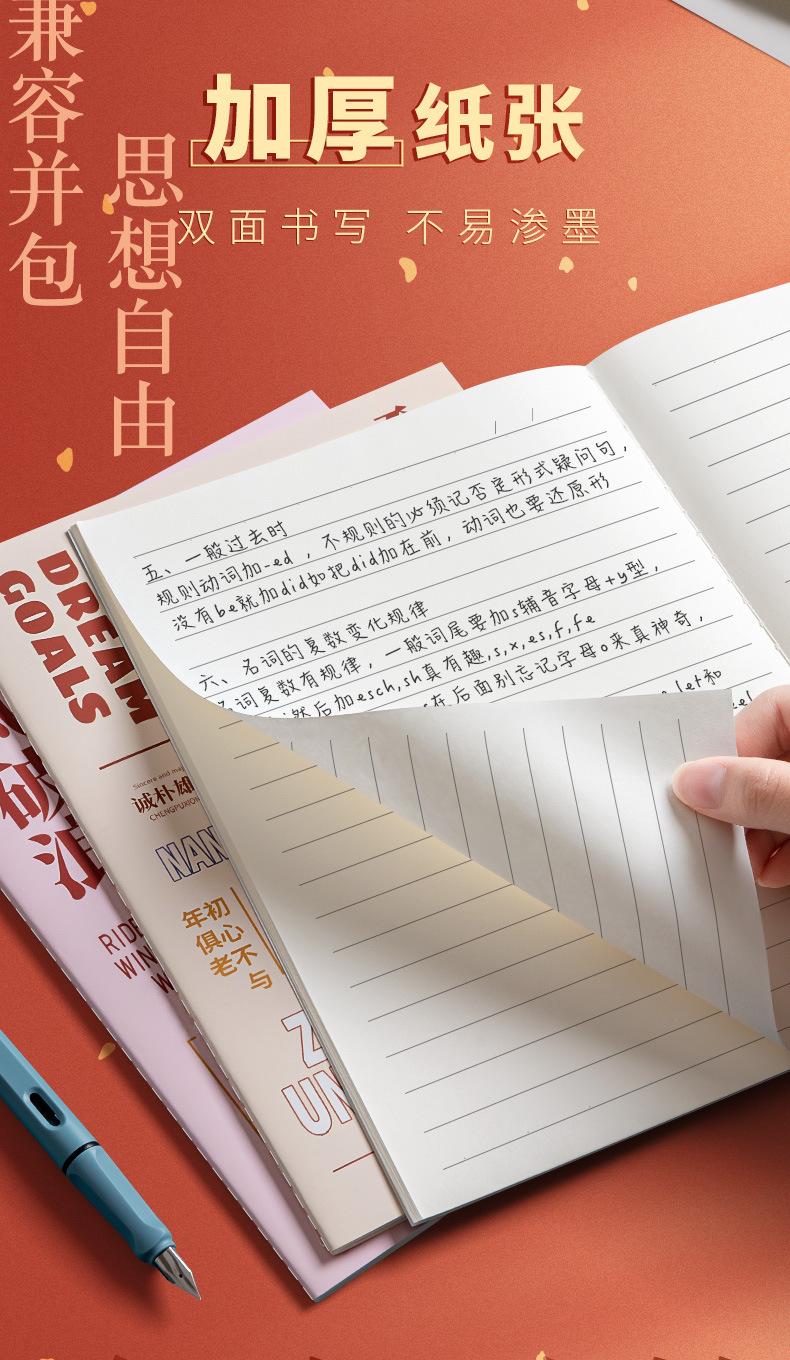 兼容并包
思想自由
加厚纸张
双面书写 不易渗墨
五、一般过去时
规则动词加-ed ，不规则的必须记否定形式疑问句，
没有be就加did如把did加在前，动词也要还原形
六、名词的复数变化规律
名词复数有规律，一般词尾要加s辅音字母+y型，
然后加esch,sh真有趣,s,x,es,f,fe
在后面别忘记字母o来真神奇，
let和
DREAM
GOALS
Sincere and
诚朴雄
CHENGPUXION
NAN
年初
俱心
老不
与
UN
破
浪
RIDE
WIN